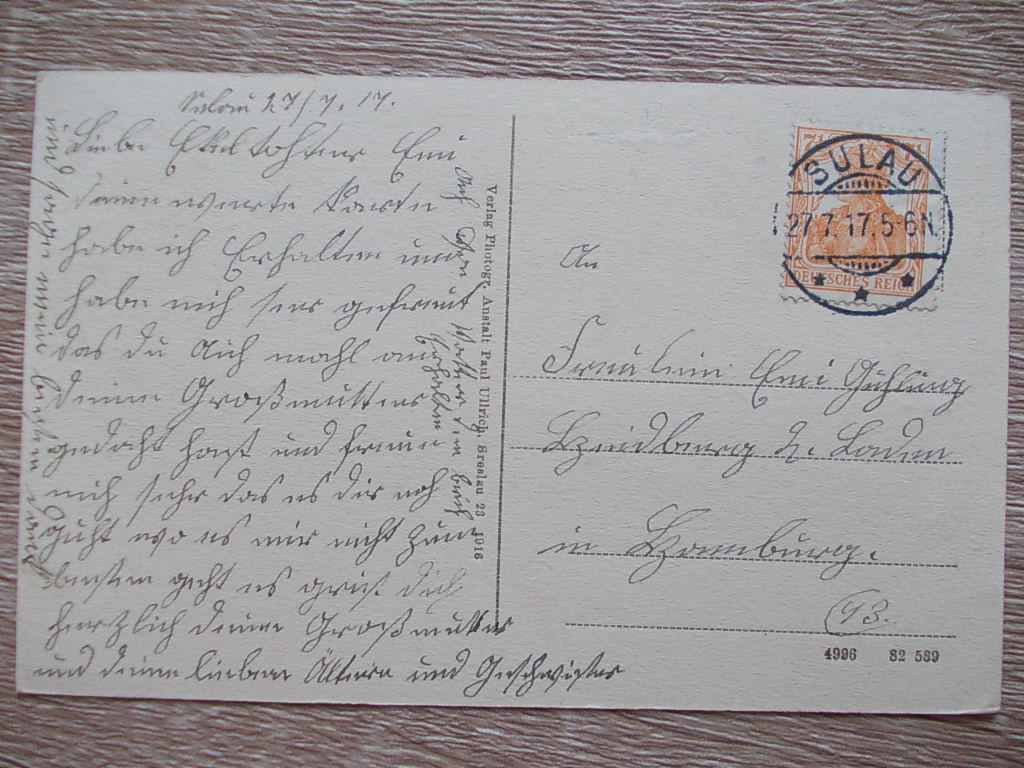 Sulau 27/7.17.
Liebe Ekeltohter Emi
deine werte Karte
habe ich Erhalten und
habe mich ser gefreut
das du Auch mahl an
deine Großmutter
gedacht hast und freue
mich sehr das es dir noh
guht wo es mir nicht zum
besten geht es grüst dich
herzlich deine Großmutter
und deine lieben Ältern und Geschwister
und
Von Vatter ein brief
Erhalten
Verlag Photogr. Anstalt Paul Ullrich, Breslau 23 1916
SULAU
27.7.17.5-6N.
DEUTSCHES REICH
An
Fräulein Emi
in Homburg.
93.
4996 82 589